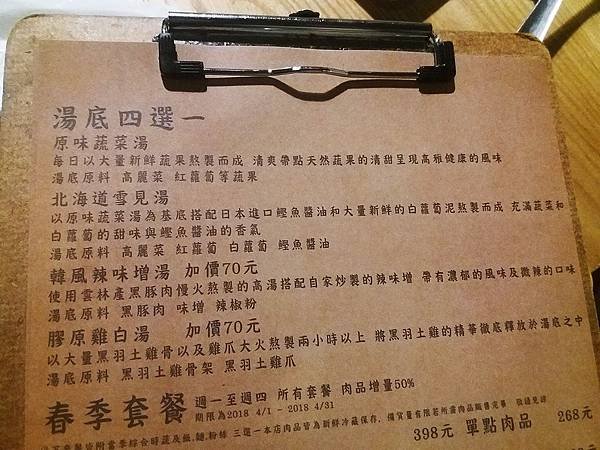 湯底四選一
原味蔬菜湯
每日以大量新鮮蔬果熬製而成 清爽帶點天然蔬果的清甜呈現高雅健康的風味
湯底原料 高麗菜 紅蘿蔔等蔬果
北海道雪見湯
以原味蔬菜湯為基底搭配日本進口鰹魚醬油和大量新鮮的白蘿蔔泥熬製而成 充滿蔬菜和
白蘿蔔的甜味與鰹魚醬油的香氣
湯底原料 高麗菜 紅蘿蔔 白蘿蔔 鰹魚醬油
韓風辣味增湯 加價70元
使用雲林產黑豚肉慢火熬製的高湯搭配自家炒製的辣味增 帶有濃郁的風味及微辣的口味
湯底原料 黑豚肉 味增 辣椒粉
膠原雞白湯 加價70元
以大量黑羽土雞骨以及雞爪大火熬製兩小時以上 將黑羽土雞的精華徹底釋放於湯底之中
湯底原料 黑羽土雞骨架 黑羽土雞爪
春季套餐 週一至週四 所有套餐 肉品增量50%
期限為2018 4/1 - 2018 4/31
三選一本店肉品皆為新鮮冷藏保存, 備貨量有限若所需肉品販售完畢 敬請見諒
398元 單點肉品 268元